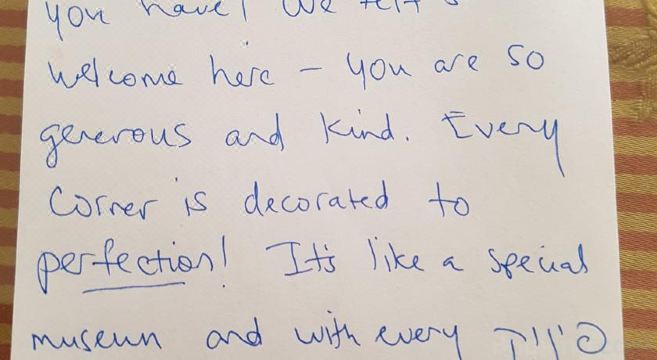 you have! We felt
welcome here - you are so
generous and kind. Every
corner is decorated to
perfection! It's like a special
museum and with every